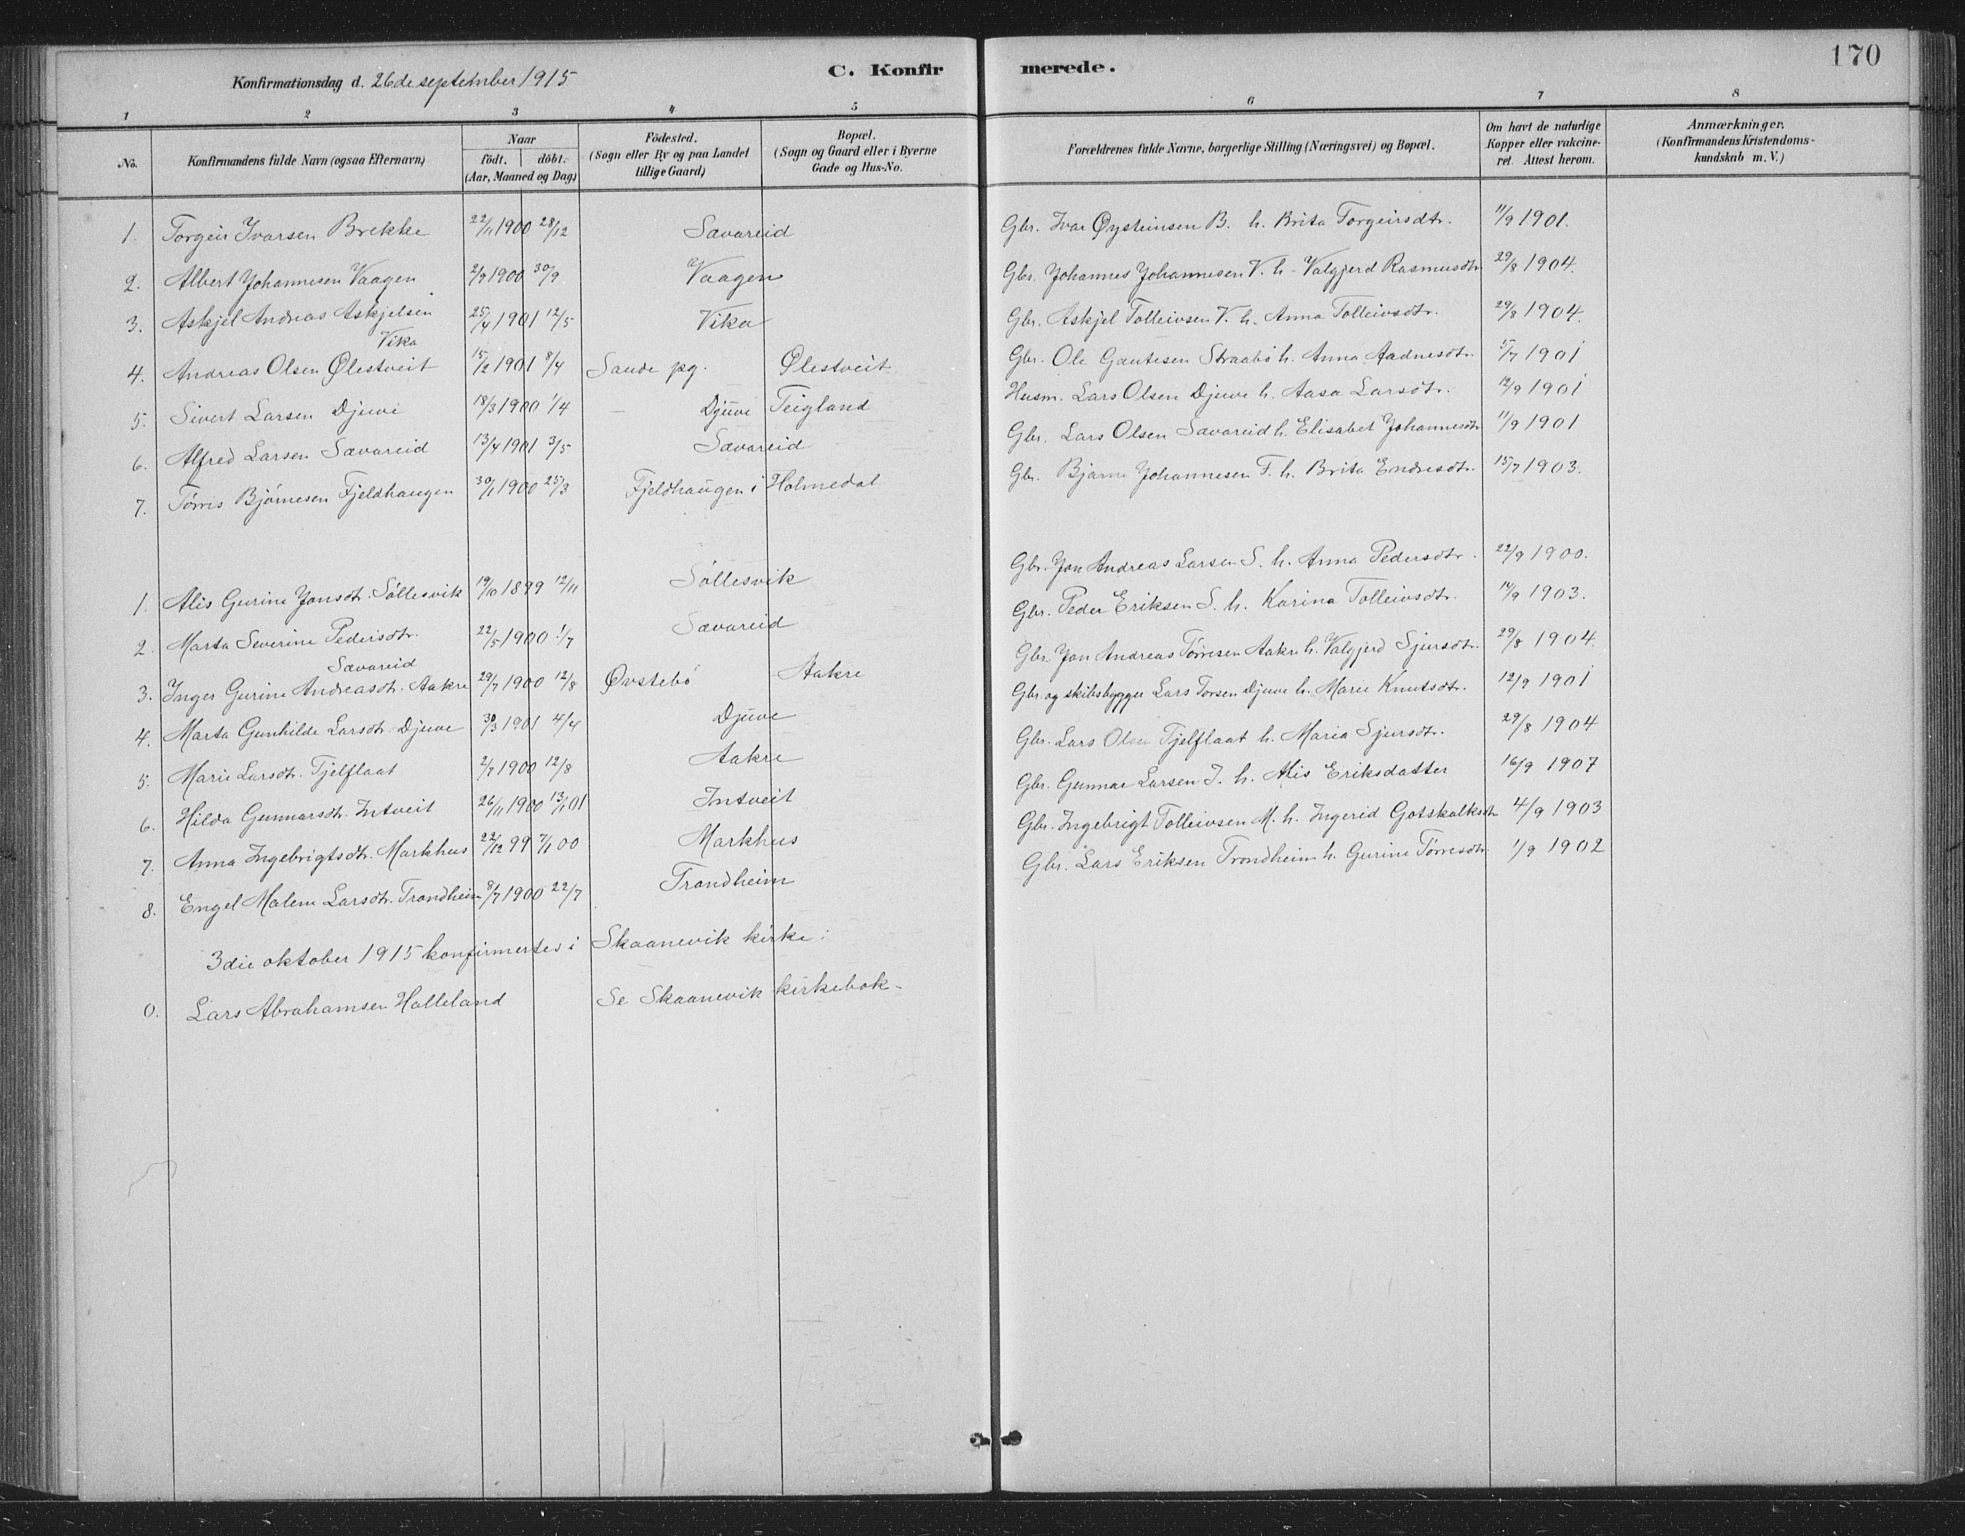 170
Konfirmationsdag d. 26de september 1915 C. Konfirmerede.
1 2 3 4 5 6 7 8
No. Konfirmandens fulde Navn (ogsaa Efternavn) Naar födt. döbt. (Aar, Maaned og Dag) Födested. (Sogn eller By og paa Landet tillige Gaard) Bopæl. (Sogn og Gaard eller i Byerne Gade og Hus-No. Forældrenes fulde Navne, borgerlige Stilling (Næringsvei) og Bopæl. Om havt de naturlige Kopper eller vakcineret. Attest herom. Anmærkninger. (Konfirmandens Kristendomskundskab m. V.)
1. Torgeir Ivarsen Brekke 22/11 1900 28/12 Sævareid Gbr. Ivar Øysteinsen B. h. Brita Torgeirsdtr. 11/9 1901.
2. Albert Johannesen Vaagen 2/9 1900 30/9 Vaagen Gbr. Johannes Johannesen V. h. Valgjerd Rasmusdtr 29/8 1904.
3. Askjel Andreas Askjelsen Vika 25/4 1901 12/5 Vika Gbr. Askjel Tolleivsen V. h. Anna Tolleivsdtr. 29/8 1904.
4. Andreas Olsen Ølestveit 15/2 1901 8/4 Sande pg. Ølestveit Gbr. Ole Gautesen Straabö h. Anna Aadnesdtr. 5/7 1901
5. Sivert Larsen Djuve 18/3 1900 1/4 — Djuve Teigland Husm. Lars Olsen Djuve h. Aasa Larsdtr. 12/9 1901
6. Alfred Larsen Sævareid 13/4 1901 3/5 Sævareid Gbr. Lars Olsen Sævareid h. Elisabet Johannesdtr 11/9 1901
7. Törris Bjørnesen Fjeldhaugen 30/1 1900 25/3 Fjeldhaugen i Holmedal Gbr. Bjarne Johannesen F. h. Brita Endresdtr. 15/7 1903.
1. Alis Gurine Jonsdtr. Söllesvik 19/10 1899 12/11 Söllesvik Gbr. Jon Andreas Larsen S. h. Anna Pedersdtr. 22/9 1900.
2. Marta Severine Pedersdtr. Sævareid 22/5 1900 1/7 Sævareid Gbr. Peder Eriksen S. h. Karina Tolleivsdtr. 14/9 1903.
3. Inger Gurine Andreasdt. Aakre 29/7 1900 12/8 Øvstebö Aakre Gbr. Jon Andreas Törresen Aakre h. Valgjerd Sjursdtr. 29/8 1904.
4. Marta Gunhilde Larsdtr. Djuve 30/3 1901 4/4 Djuve Gbr. og skibsbygger Lars Torsen Djuve h. Marie Knutsdtr. 12/9 1901
5. Marie Larsdtr. Tjelflaat 2/7 1900 12/8 Aakre Gbr. Lars Olsen Tjelflaat h. Maria Sjursdtr. 29/8 1904
6. Hilda Gunnarsdtr. Intveit 26/11 1900 13/1 01 Intveit Gbr. Gunnar Larsen I. h. Alis Eriksdatter 16/9 1907
7. Anna Ingebrigtsdtr. Markhus 22/12 99 7/1 00 Markhus Gbr. Ingebrigt Tolleivsen M. h. Ingerid Gotskalksdtr 4/9 1903
8. Engel Malene Larsdtr. Trondheim 8/7 1900 22/7 Trondheim Gbr. Lars Eriksen Trondheim h. Gurine Törresdtr. 1/9 1902
3die oktober 1915 konfirmertes i Skaanevik kirke:
0. Lars Abrahamsen Halleland Se Skaanevik kirkebok-